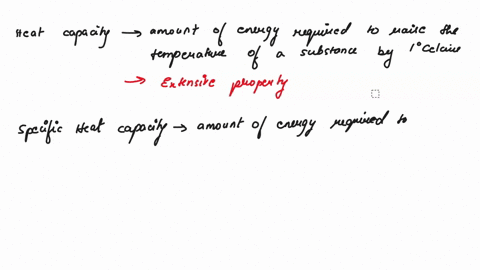 Heat capacity → amount of energy required to raise the
temperature of a substance by 1° Celcius
→ Extensive property
Specific Heat capacity → amount of energy required to